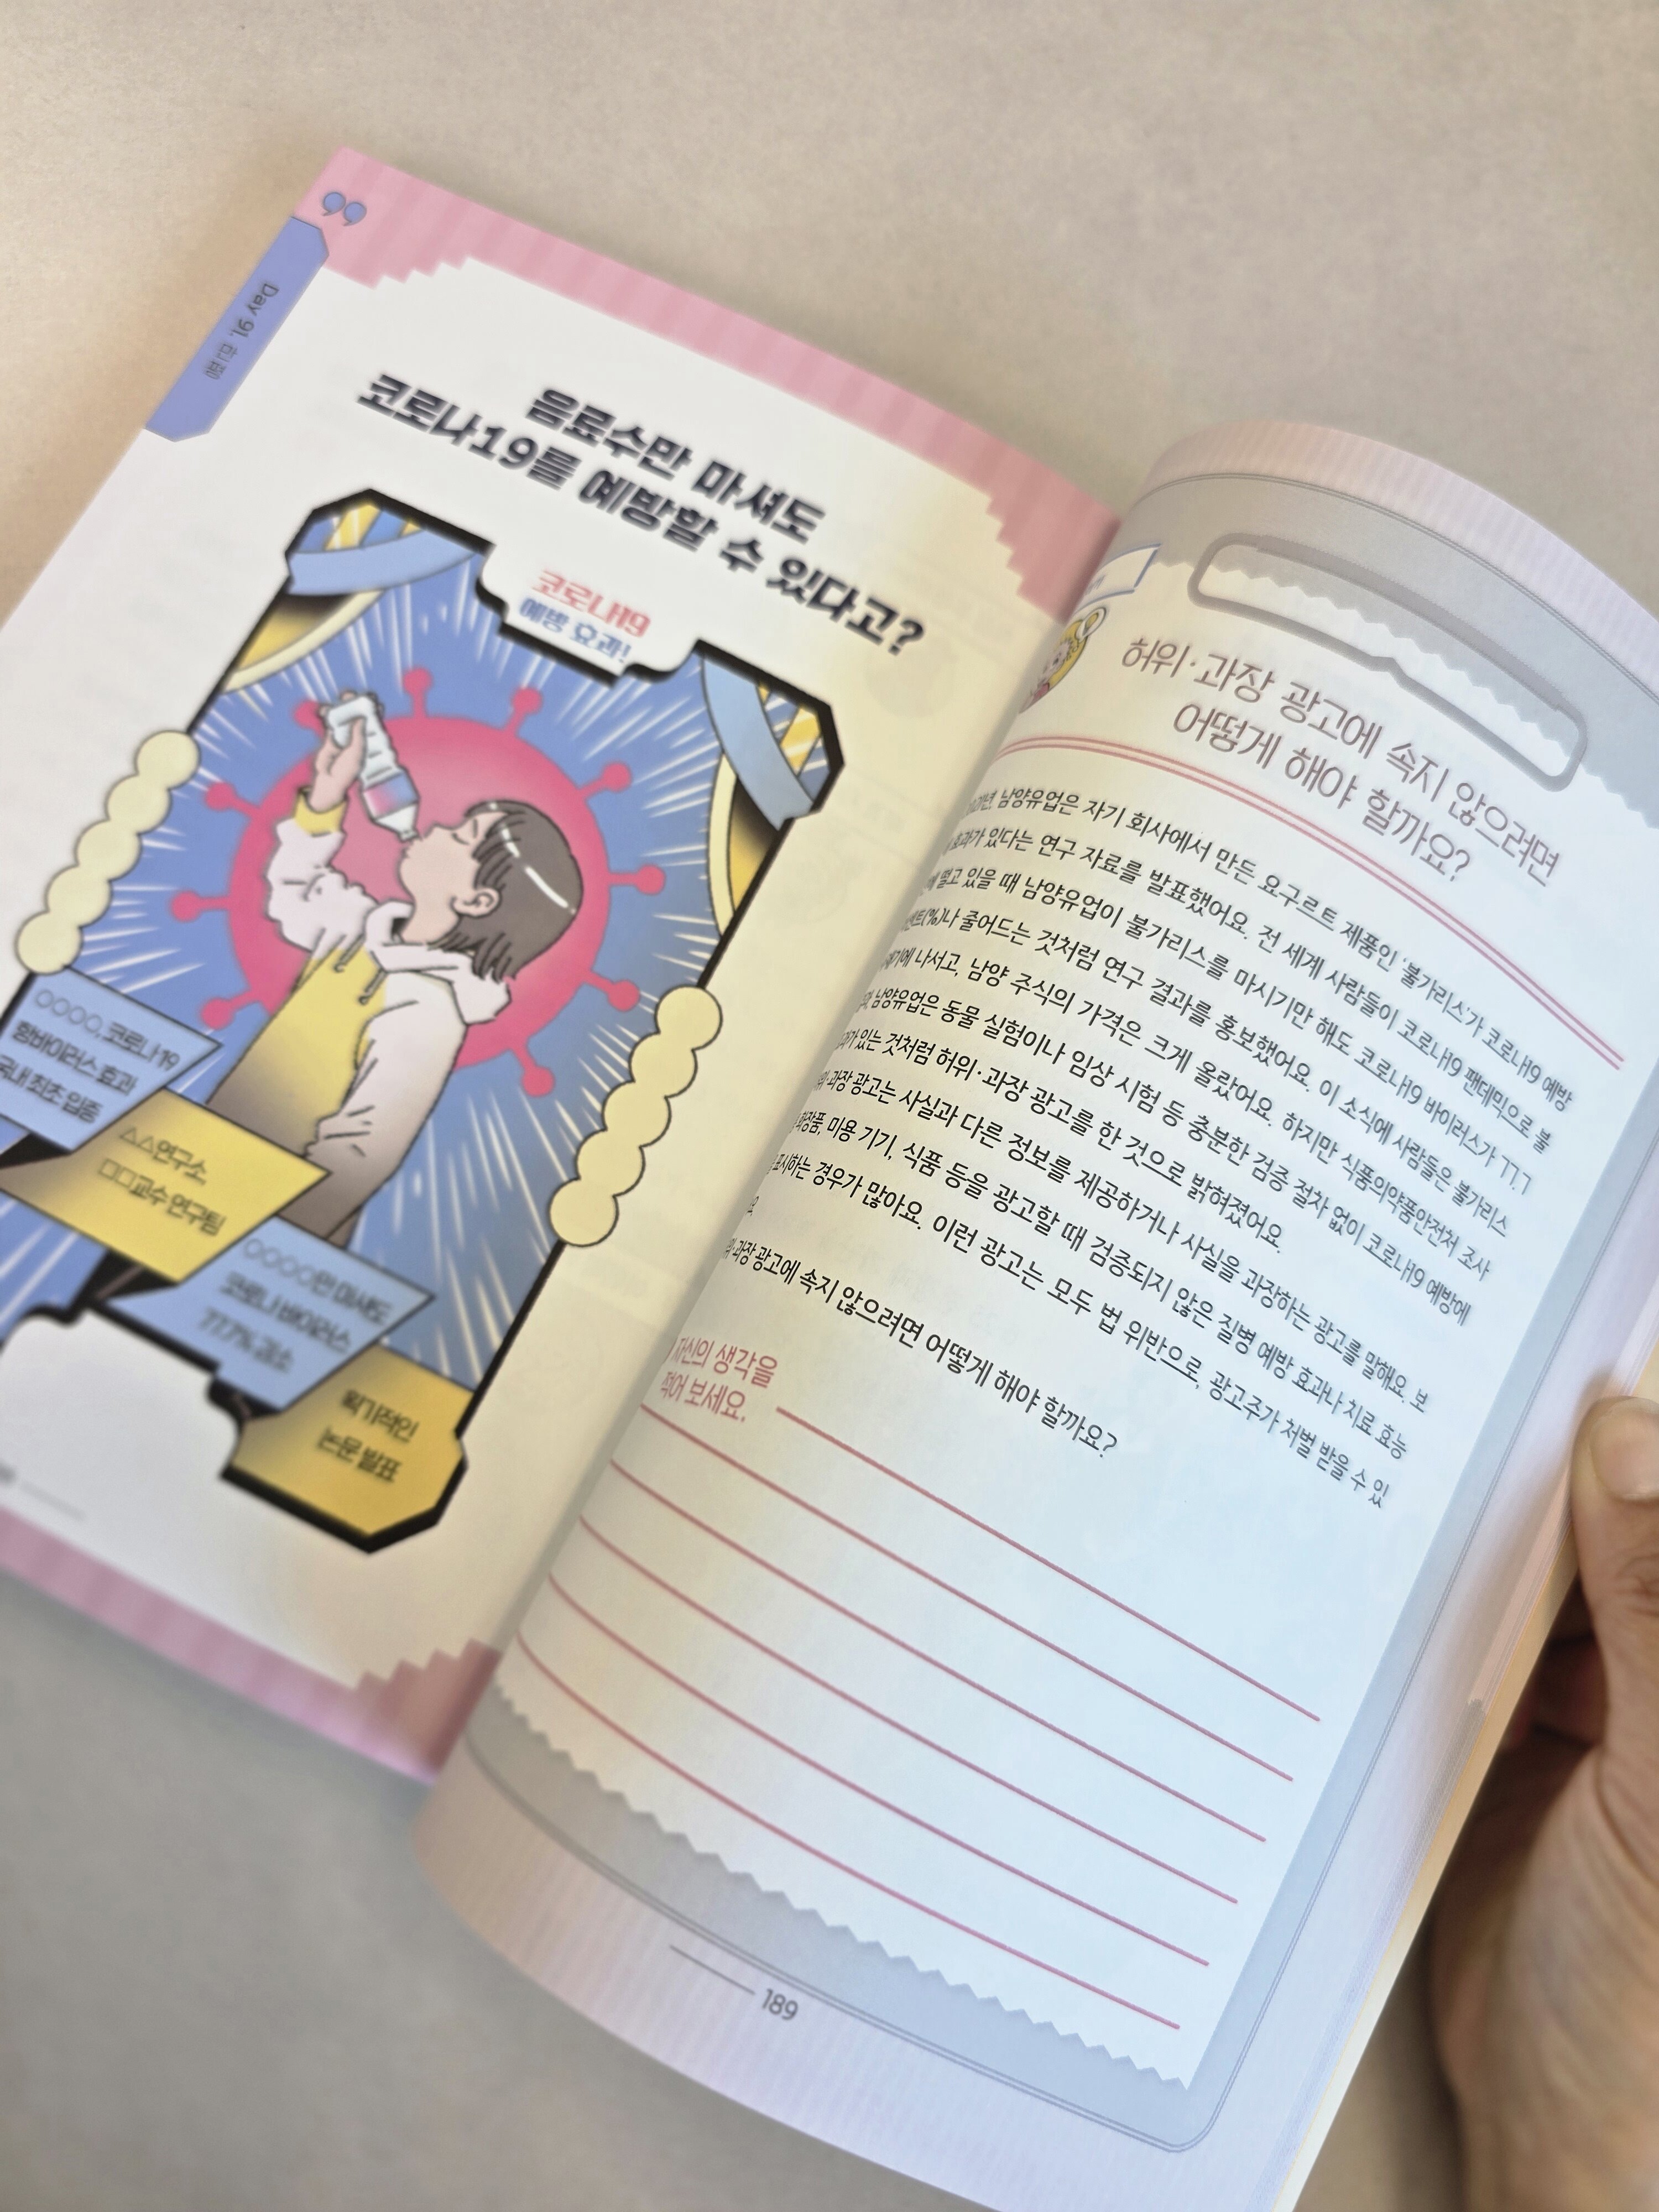 Day 91.
음료수만 마셔도
코로나19를 예방할 수 있다고?
코로나19
예방 효과!
○○○○, 코로나19
항바이러스 효과
국내 최초 입증
△△연구소,
□□교수 연구팀
○○○○만 마셔도
코로나 바이러스
77.7% 감소
획기적인
논문 발표
허위·과장 광고에 속지 않으려면
어떻게 해야 할까요?
남양유업은 자기 회사에서 만든 요구르트 제품인 '불가리스'가 코로나19 예방
효과가 있다는 연구 자료를 발표했어요. 전 세계 사람들이 코로나19 팬데믹으로 불
떨고 있을 때 남양유업이 불가리스를 마시기만 해도 코로나19 바이러스가 77.7
(%)나 줄어드는 것처럼 연구 결과를 홍보했어요. 이 소식에 사람들은 불가리스
나서고, 남양 주식의 가격은 크게 올랐어요. 하지만 식품의약품안전처 조사
남양유업은 동물 실험이나 임상 시험 등 충분한 검증 절차 없이 코로나19 예방에
있는 것처럼 허위·과장 광고를 한 것으로 밝혀졌어요.
과장 광고는 사실과 다른 정보를 제공하거나 사실을 과장하는 광고를 말해요. 보
화장품, 미용 기기, 식품 등을 광고할 때 검증되지 않은 질병 예방 효과나 치료 효능
표시하는 경우가 많아요. 이런 광고는 모두 법 위반으로, 광고주가 처벌 받을 수 있
요.
과장 광고에 속지 않으려면 어떻게 해야 할까요?
자신의 생각을
적어 보세요.
189